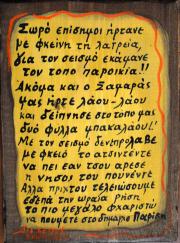 Σωρό επίσημοι ήρτανε
με φκείνη τη λατρεία,
για τον σεισμό εκάμανε
τον τόπο παροικία!!
Ακόμα και ο Σαμαράς
ήρτε λάου-λάου
και δείπνησε στο τόπο μας
δύο φύλλα μπακαλάου!
Με τον σεισμό δεν
με φκειό το
να πει εαν τσου αρεσε
η νησος του πουνέντε
Αλλα πριχτου τελειώσουμε
εδεπά την ωραία ρήση
Το πιο μεγάλο φχαριστώ
να πουμετε στο δήμαρχο Παρίση